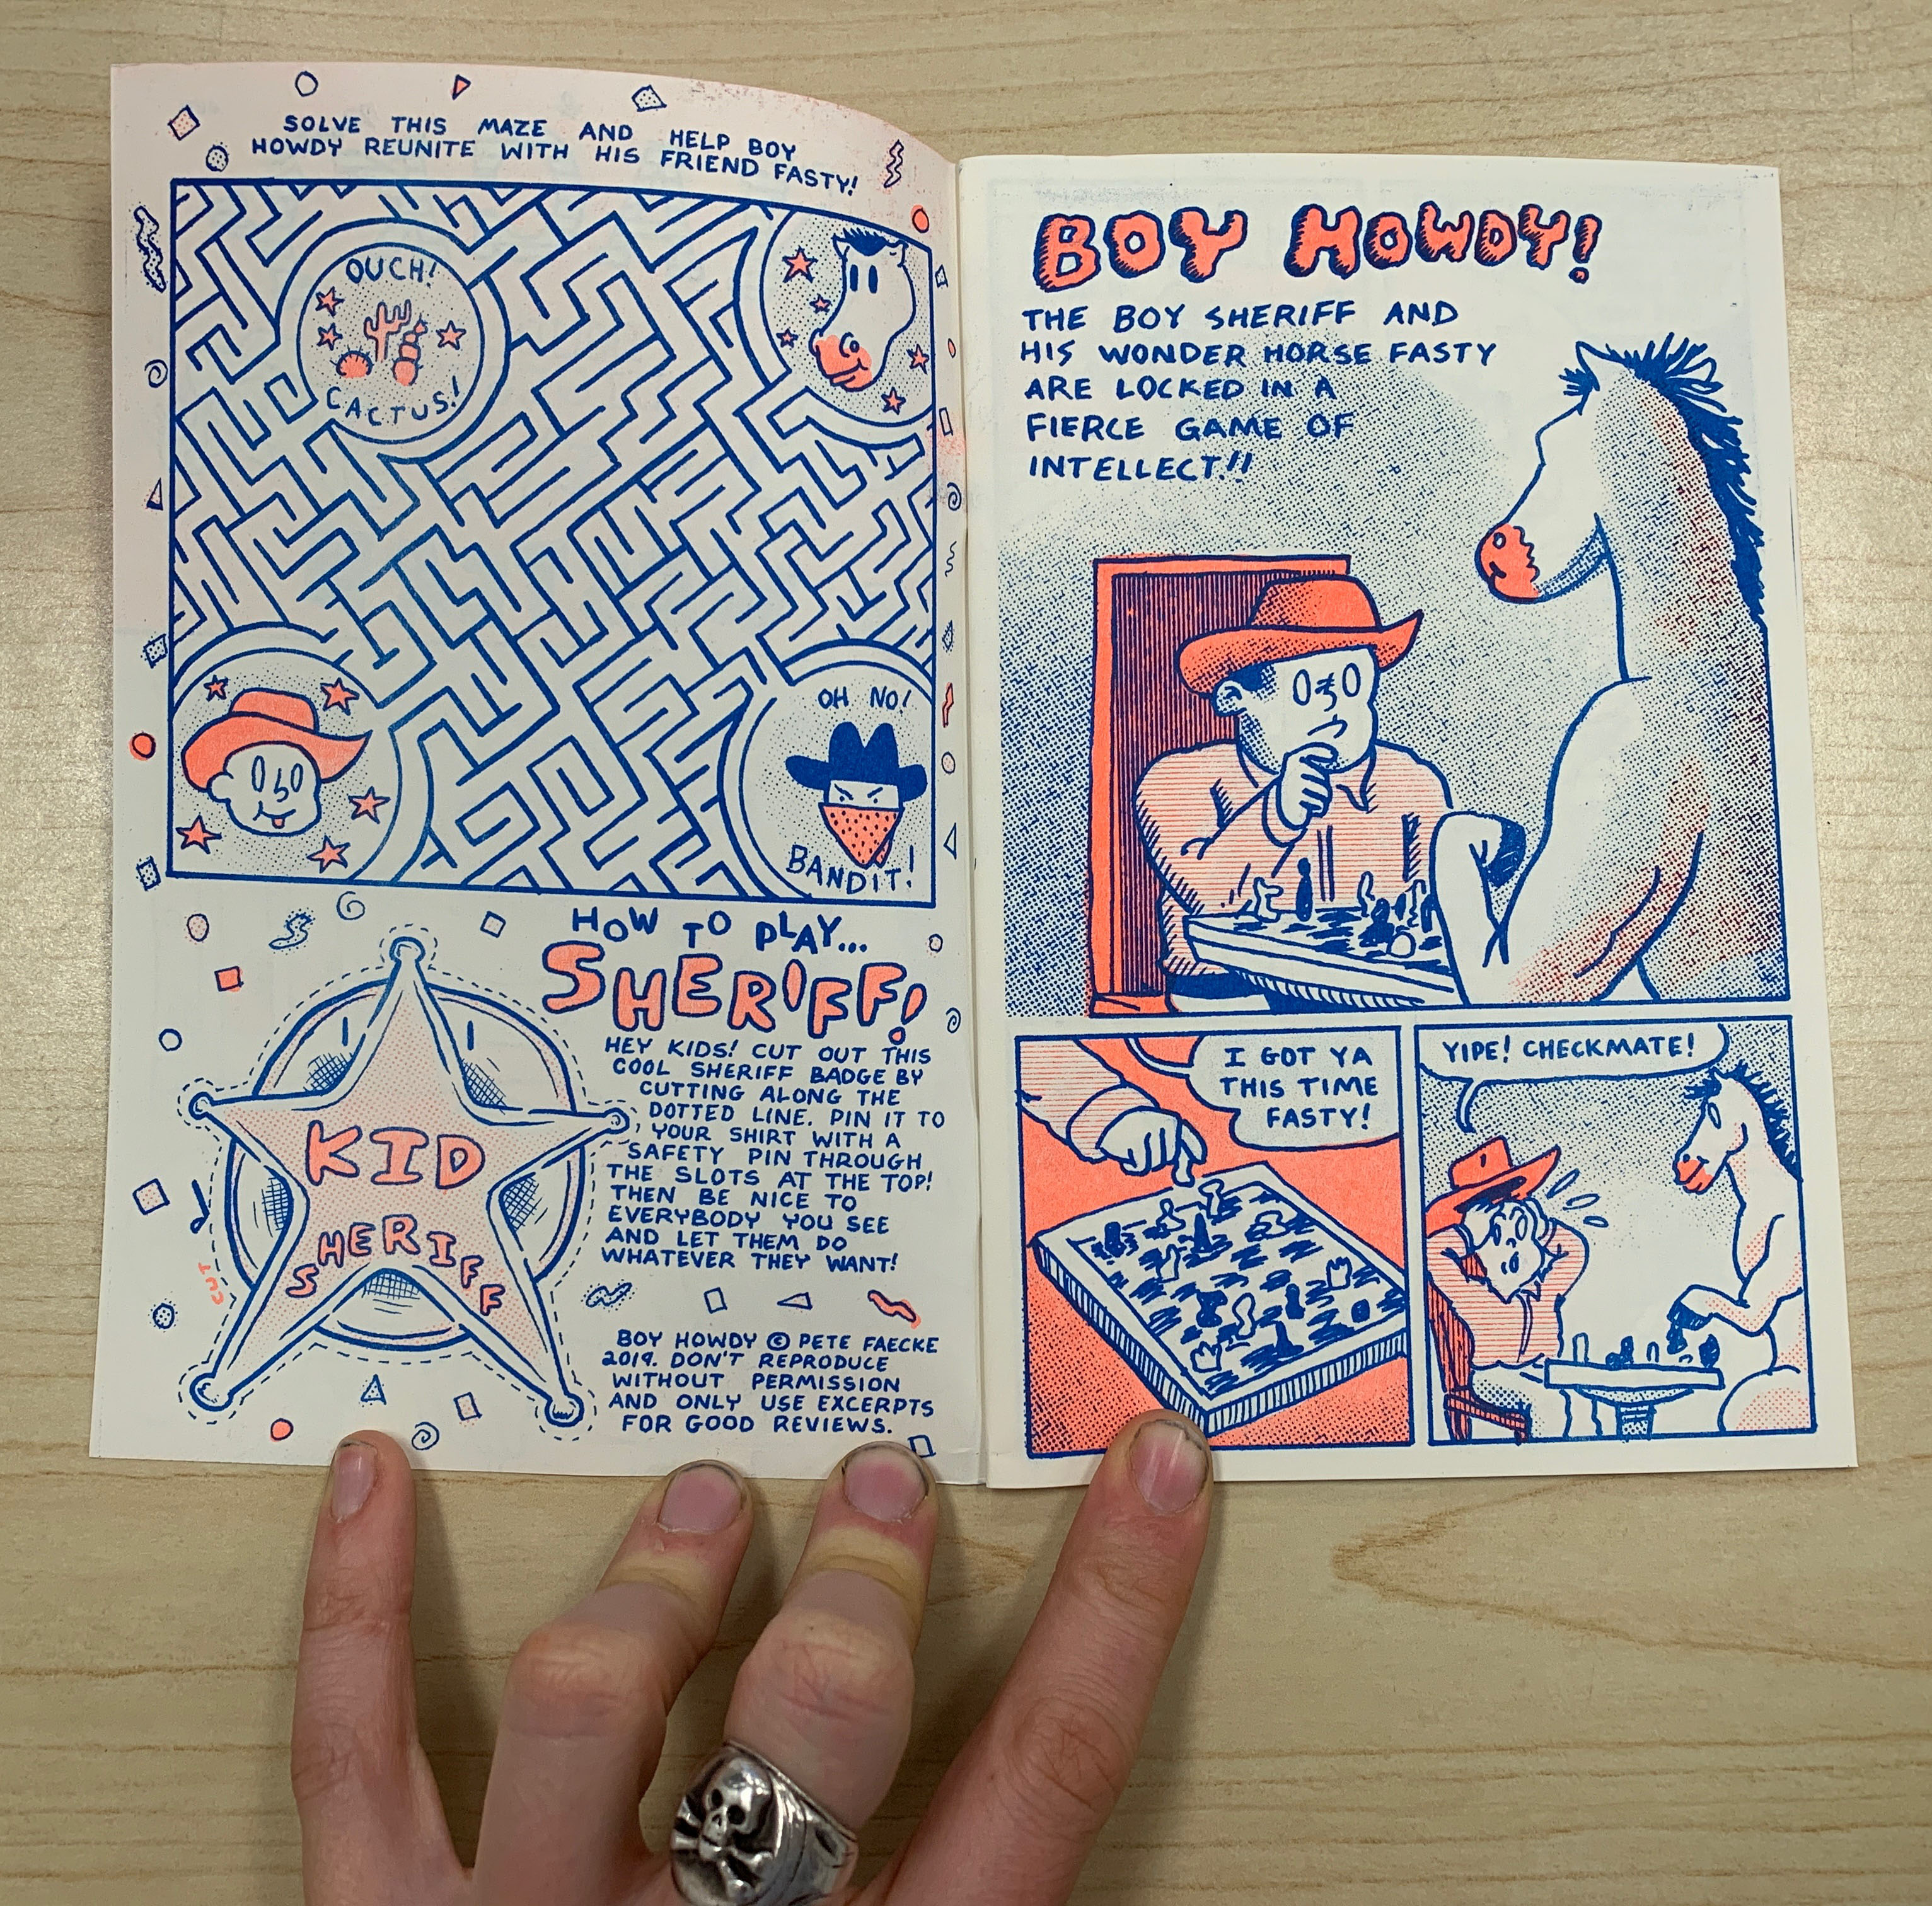 SOLVE THIS MAZE AND HELP BOY
HOWDY REUNITE WITH HIS FRIEND FASTY!
OUCH!
CACTUS!
OH NO!
BANDIT!
HOW TO PLAY...
SHERIFF!
HEY KIDS! CUT OUT THIS
COOL SHERIFF BADGE BY
CUTTING ALONG THE
DOTTED LINE. PIN IT TO
YOUR SHIRT WITH A
SAFETY PIN THROUGH
THE SLOTS AT THE TOP!
THEN BE NICE TO
EVERYBODY YOU SEE
AND LET THEM DO
WHATEVER THEY WANT!
KID
SHERIFF
CUT
BOY HOWDY © PETE FAECKE
2019. DON'T REPRODUCE
WITHOUT PERMISSION
AND ONLY USE EXCERPTS
FOR GOOD REVIEWS.
BOY HOWDY!
THE BOY SHERIFF AND
HIS WONDER HORSE FASTY
ARE LOCKED IN A
FIERCE GAME OF
INTELLECT!!
I GOT YA
THIS TIME
FASTY!
YIPE! CHECKMATE!